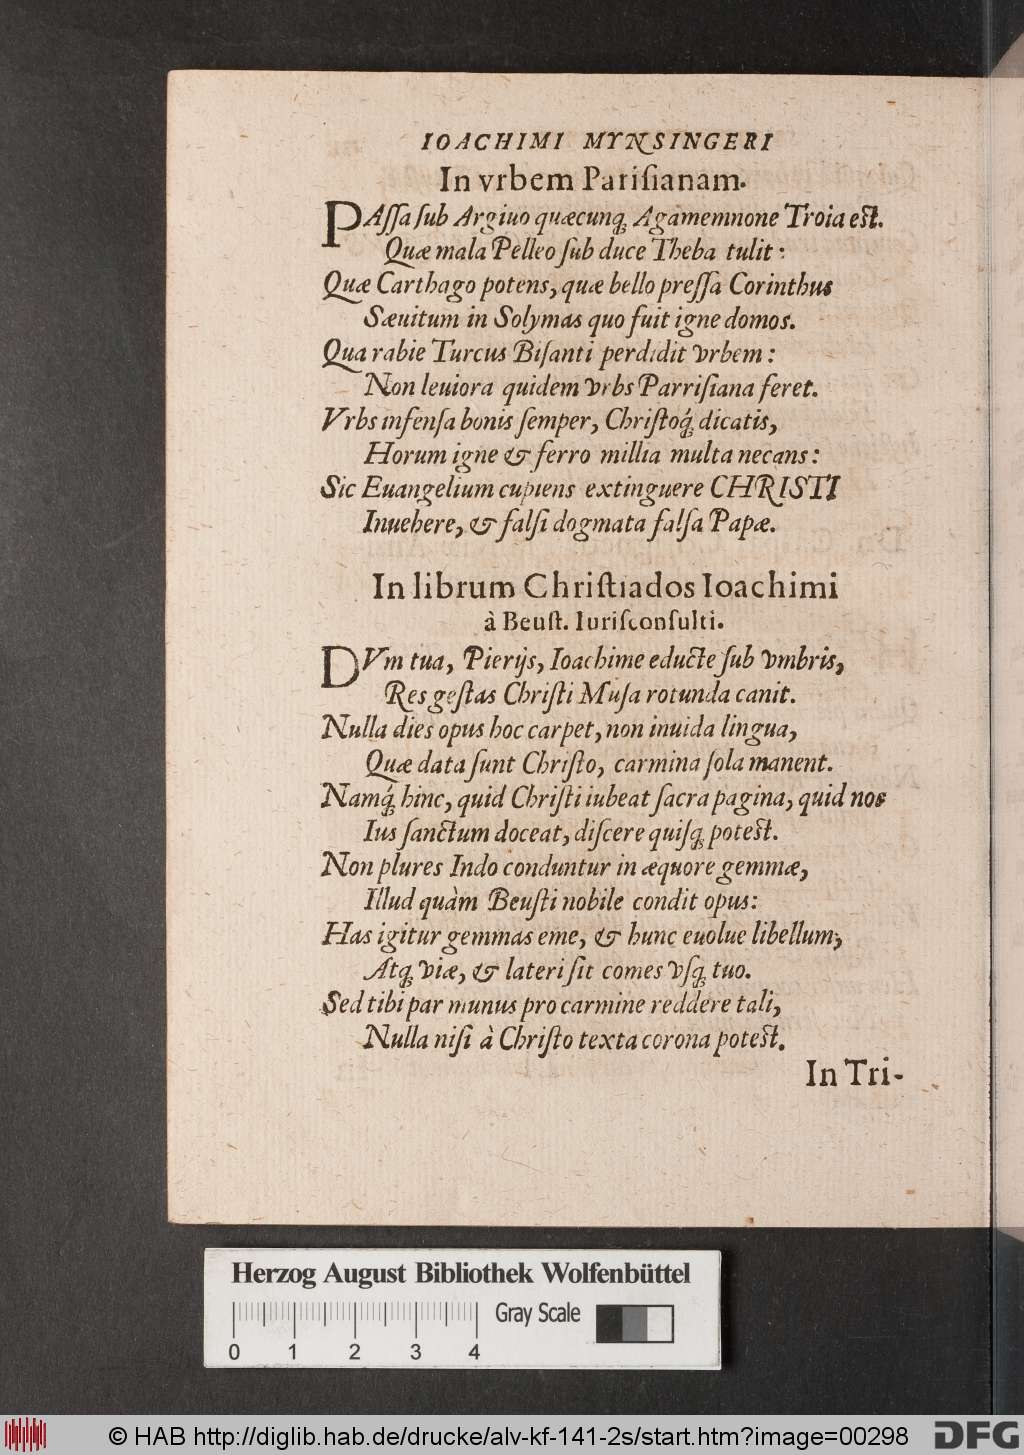 IOACHIMI MYNSINGERI
In vrbem Pariſianam.
PAſſa ſub Argiuo quæcunq́; Agamemnone Troia est.
Quæ mala Pelleo ſub duce Theba tulit:
Quæ Carthago potens, quæ bello preſſa Corinthus
Sæuitum in Solymas quo fuit igne domos.
Qua rabie Turcus Biſanti perdidit vrbem:
Non leuiora quidem vrbs Parriſiana feret.
Vrbs infenſa bonis ſemper, Chriſtoq́; dicatis,
Horum igne & ferro millia multa necans:
Sic Euangelium cupiens extinguere CHRISTI
Inuehere, & falſi dogmata falſa Papæ.
In librum Chriſtiados Ioachimi
à Beuſt. Iuriſconſulti.
DVm tua, Pierijs, Ioachime educte ſub vmbris,
Res geſtas Chriſti Muſa rotunda canit.
Nulla dies opus hoc carpet, non inuida lingua,
Quæ data ſunt Chriſto, carmina ſola manent.
Namq́; hinc, quid Chriſti iubeat ſacra pagina, quid nos
Ius ſanctum doceat, diſcere quiſq; potest.
Non plures Indo conduntur in æquore gemmæ,
Illud quàm Beuſti nobile condit opus:
Has igitur gemmas eme, & hunc euolue libellum,
Atq; viæ, & lateri ſit comes vſq; tuo.
Sed tibi par munus pro carmine reddere tali,
Nulla niſi à Chriſto texta corona potest.
In Tri-
Herzog August Bibliothek Wolfenbüttel
Gray Scale
0 1 2 3 4
© HAB http://diglib.hab.de/drucke/alv-kf-141-2s/start.htm?image=00298
DFG